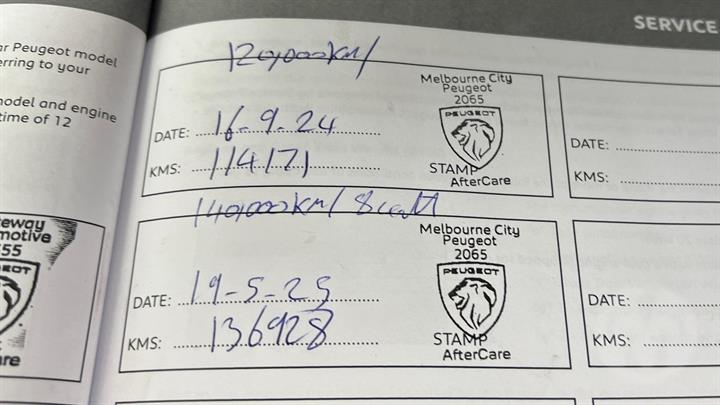 SERVICE
ar Peugeot model
erring to your
nodel and engine
time of 12
120,000km/
Melbourne City
Peugeot
2065
PEUGEOT
DATE: 16-9-24
KMS: 114171
STAMP
AfterCare
DATE:
KMS:
140,000km/
Melbourne City
Peugeot
2065
PEUGEOT
DATE: 19-5-25
KMS: 136928
STAMP
AfterCare
DATE:
KMS:
eway
motive
55
EOT
re